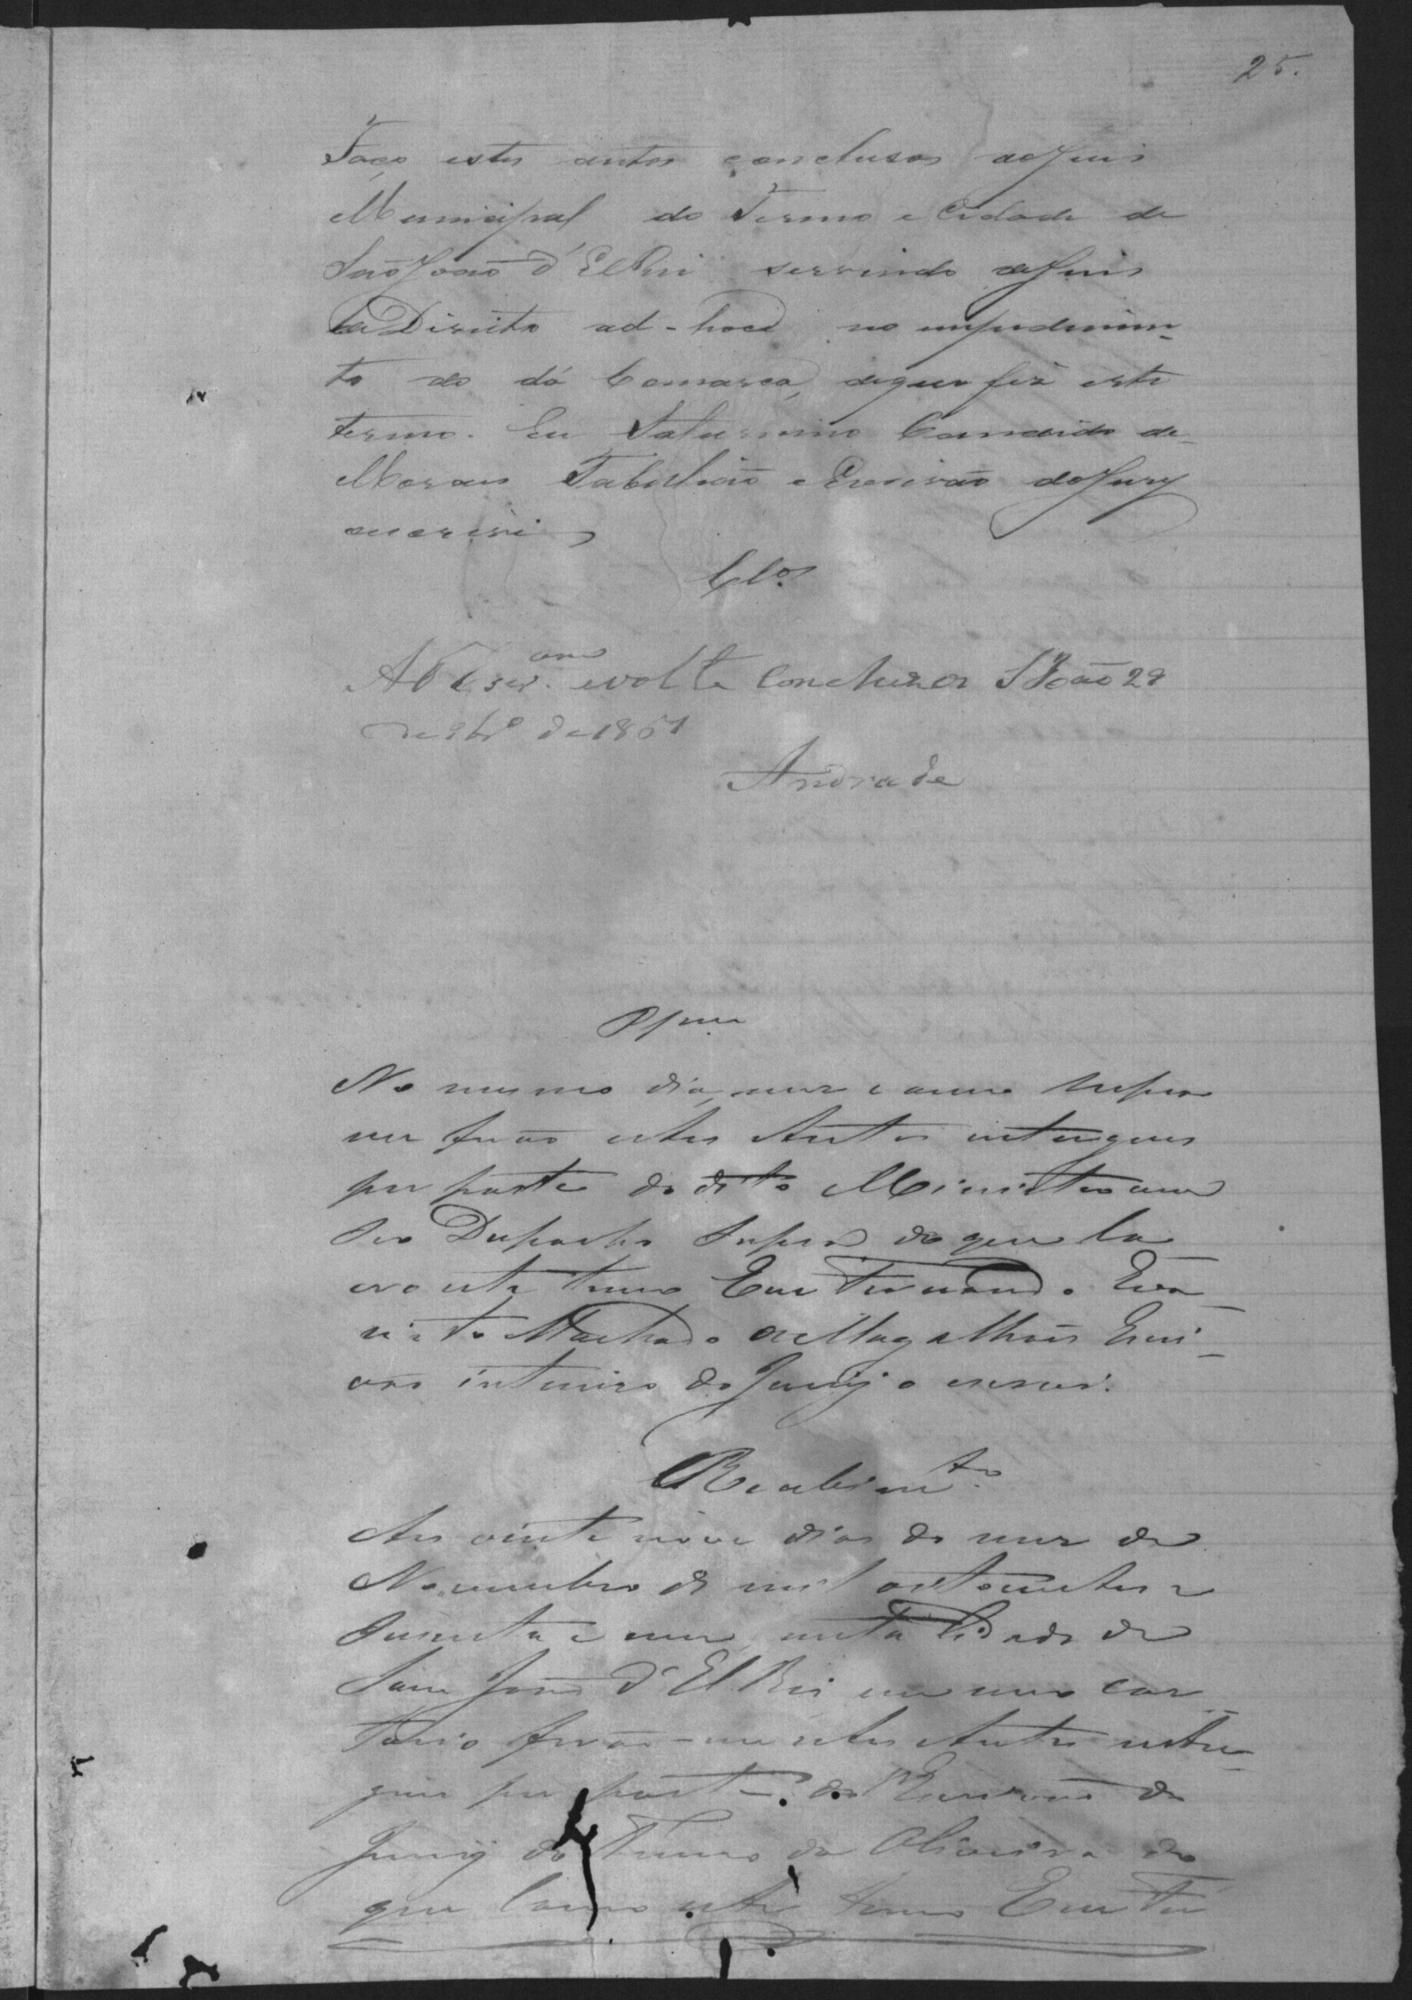 25.
Faço estes autos conclusos ao Juis
Municipal do Termo e Cidade de
São João d'El Rei servindo de Juis
de Direito ad-hoc no impedimen-
to do da Comarca, de que fiz este
termo. Eu Saturnino Candido de
Moraes Tabelião e Escrivão do Jury
escrivi
Clos.
volte conclusos S João 29
de 9bro de 1861
Andrade
No mesmo dia, mes e anno supra
me forão estes Autos entregues
por parte do dito Ministro com
seo Despacho supra do que la
vro este termo Eu Fernando Eva-
risto Machado de Magalhães Escri-
vão interino do Jury o escrevi.
Recebimto.
Aos vinte nove dias do mez de
Novembro de mil oitocentos e
secenta e um, nesta Cidade de
Sam João d'El Rei em meo car-
torio forão-me estes Autos entre-
gues por parte do Escrivão do
Jury do Termo da Oliveira do
que lavro este termo Eu Fer